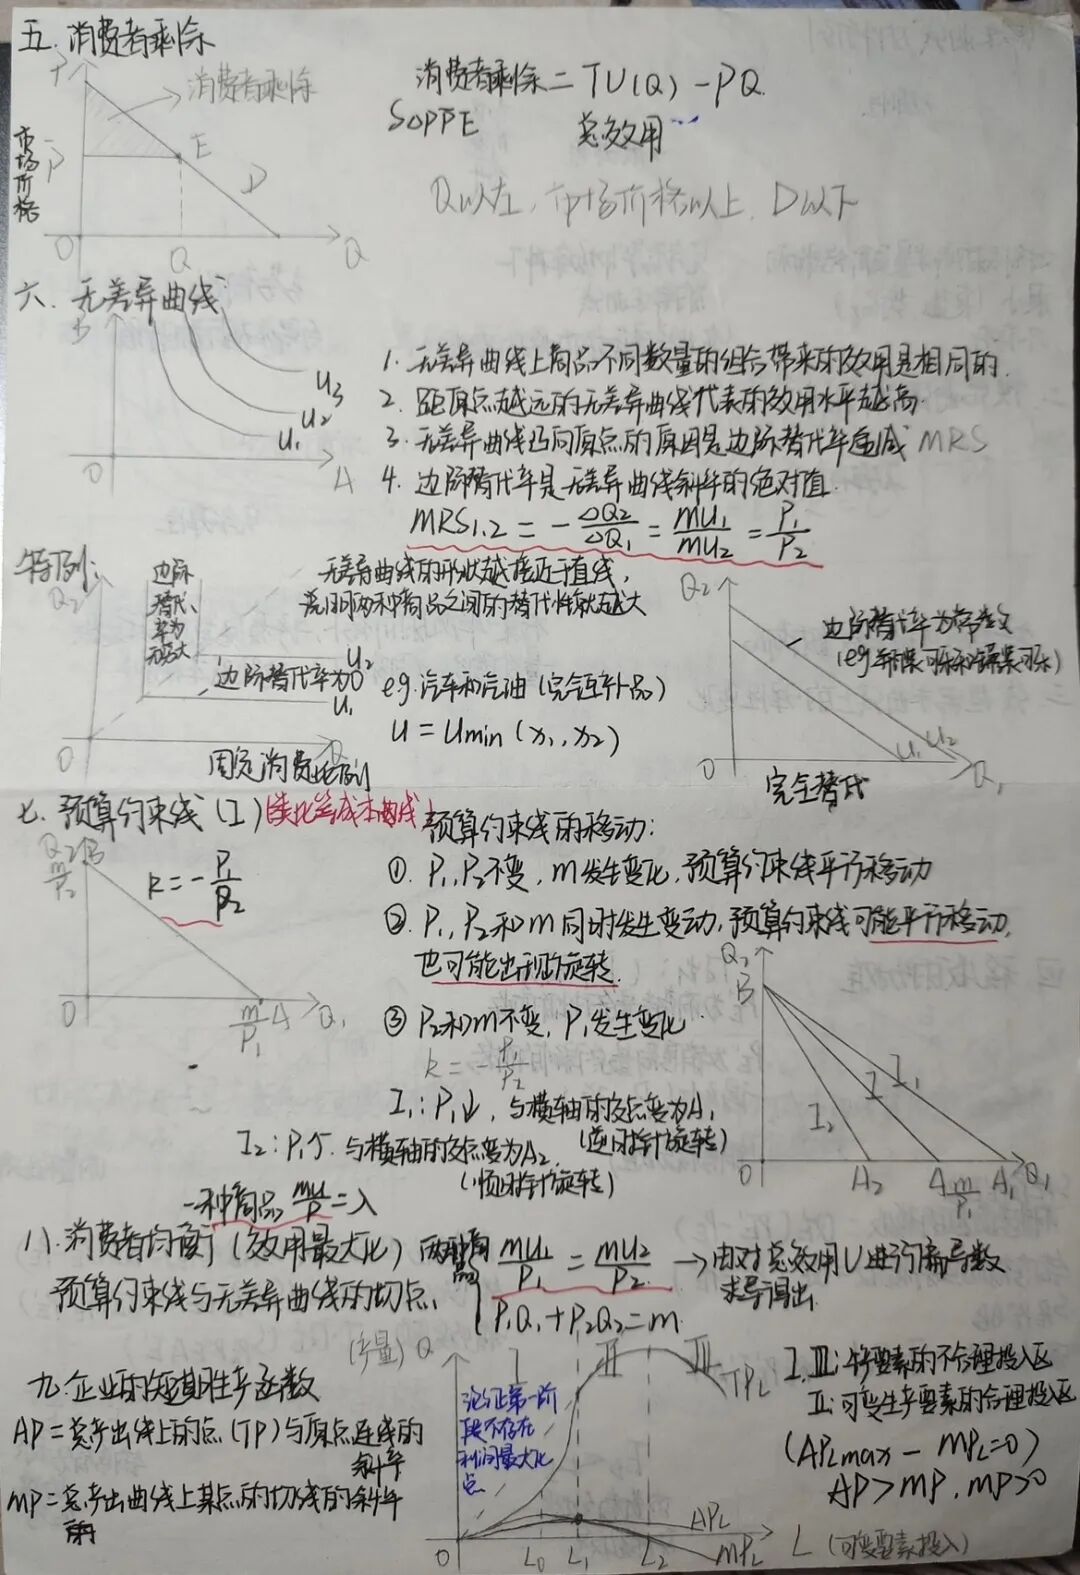 五.消费者剩余
P
消费者剩余
消费者剩余=TU(Q)-PQ
SOPPE
总效用
市场价格
P
E
D
Q以左,市场价格以上,D以下
O
Q
Q
六. 无差异曲线
B
U3
U2
U1
O
A
1. 无差异曲线上商品不同数量的组合带来的效用是相同的.
2. 距原点越远的无差异曲线代表的效用水平越高.
3. 无差异曲线凸向原点的原因是边际替代率递减 MRS
4. 边际替代率是无差异曲线斜率的绝对值.
MRS1.2 = -ΔQ2/ΔQ1 = MU1/MU2 = P1/P2
特例:
Q2
边际替代率为无穷大
无差异曲线的形状越接近于直线,
说明两种商品之间的替代性就越大
U2
边际替代率为0
U1
eg.汽车和汽油(完全互补品)
U=Umin(x1,x2)
O
固定消费比例
Q2
边际替代率为常数
O
U1
U2
Q1
完全替代
七.预算约束线(I)
Q2
B
m/P2
k=-P1/P2
O
m/P1
A
Q1
预算约束线的移动:
①. P1,P2不变,m发生变化,预算约束线平行移动
②. P1,P2和m同时发生变动,预算约束线可能平行移动,
也可能出现旋转.
③ P2和m不变,P1发生变化
k=-P1/P2
I1:P1↓,与横轴的交点变为A1
(逆时针旋转)
I2:P1↑.与横轴的交点变为A2.
(顺时针旋转)
Q2
B
I2
I
I1
O
A2
A
m/P1
A1
Q1
一种商品 MU/P=λ
八.消费者均衡(效用最大化)
两种商品
MU1/P1=MU2/P2
→由对总效用U进行偏导数
求导得出
预算约束线与无差异曲线的切点.
P1Q1+P2Q2=m
九.企业的短期生产函数
AP=总产出线上的点(TP)与原点连线的
斜率
MP=总产出曲线上某点的切线的斜率
(产量)Q
I
II
III
TPL
论证第一阶
段不存在
利润最大化
点.
O
L0
L1
L2
APL
MPL
L
(可变要素投入)
I.III:生产要素的不合理投入区
II:可变生产要素的合理投入区
(APLmax-MPL=0)
AP>MP,MP>0